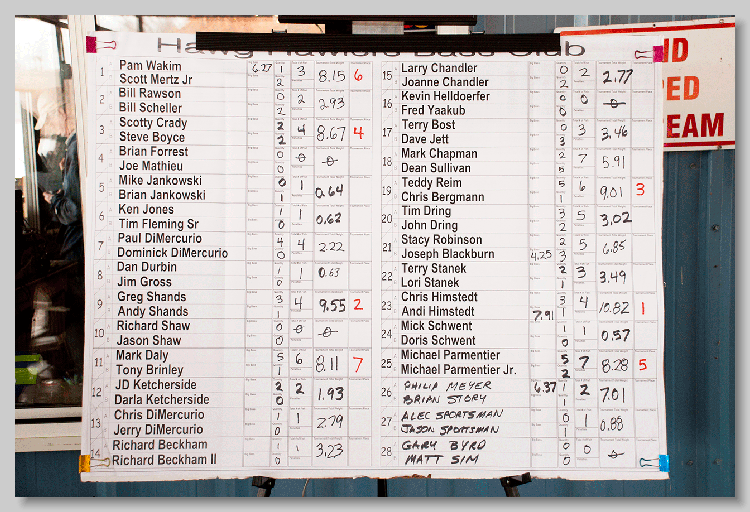 Hawg Hawlers Bass Club
1 Pam Wakim 6.27 1 3 8.15 6
Scott Mertz Jr 2
2 Bill Rawson 0 2 2.93
Bill Scheller 2
3 Scotty Crady 2 4 8.67 4
Steve Boyce 2
4 Brian Forrest 0 0 0
Joe Mathieu 0
5 Mike Jankowski 0 1 0.64
Brian Jankowski 1
6 Ken Jones 1 1 0.62
Tim Fleming Sr 0
7 Paul DiMercurio 4 4 2.22
Dominick DiMercurio 0
8 Dan Durbin 1 1 0.63
Jim Gross 0
9 Greg Shands 3 4 9.55 2
Andy Shands 1
10 Richard Shaw 0 0 0
Jason Shaw 0
11 Mark Daly 5 6 8.11 7
Tony Brinley 1
12 JD Ketcherside 2 2 1.93
Darla Ketcherside 0
13 Chris DiMercurio 1 1 2.79
Jerry DiMercurio 0
14 Richard Beckham 1 1 3.23
Richard Beckham II 0
15 Larry Chandler 0 2 2.77
Joanne Chandler 2
16 Kevin Helldoerfer 0 0 0
Fred Yaakub 0
17 Terry Bost 0 3 3.46
Dave Jett 3
18 Mark Chapman 2 7 5.91
Dean Sullivan 5
19 Teddy Reim 5 6 9.01 3
Chris Bergmann 1
20 Tim Dring 3 5 3.02
John Dring 2
21 Stacy Robinson 2 5 6.85
Joseph Blackburn 4.25 3
22 Terry Stanek 2 3 3.49
Lori Stanek 1
23 Chris Himstedt 3 4 10.82 1
Andi Himstedt 7.91 1
24 Mick Schwent 1 1 0.57
Doris Schwent 0
25 Michael Parmentier 5 7 8.28 5
Michael Parmentier Jr. 2
26 PHILIP MEYER 6.37 1 2 7.01
BRIAN STORY 1
27 ALEC SPORTSMAN 1 1 0.88
JASON SPORTSMAN 0
28 GARY BYRD 0 0 0
MATT SIM 0
ID
ED
EAM